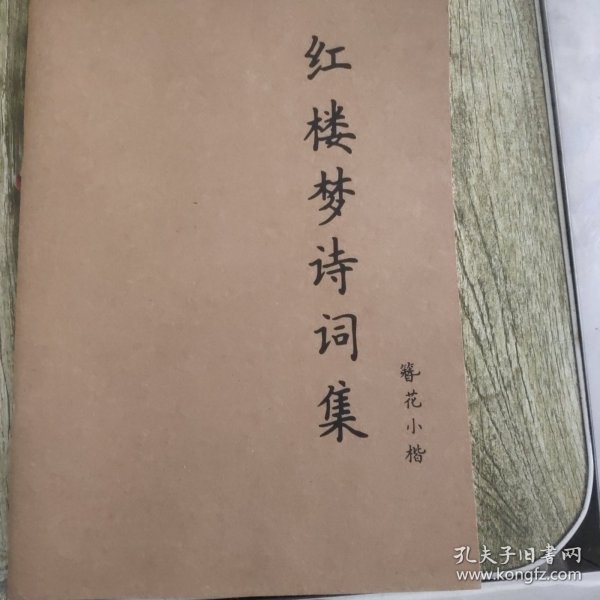 红楼梦诗词集
簪花小楷
孔夫子旧书网
www.kongfz.com